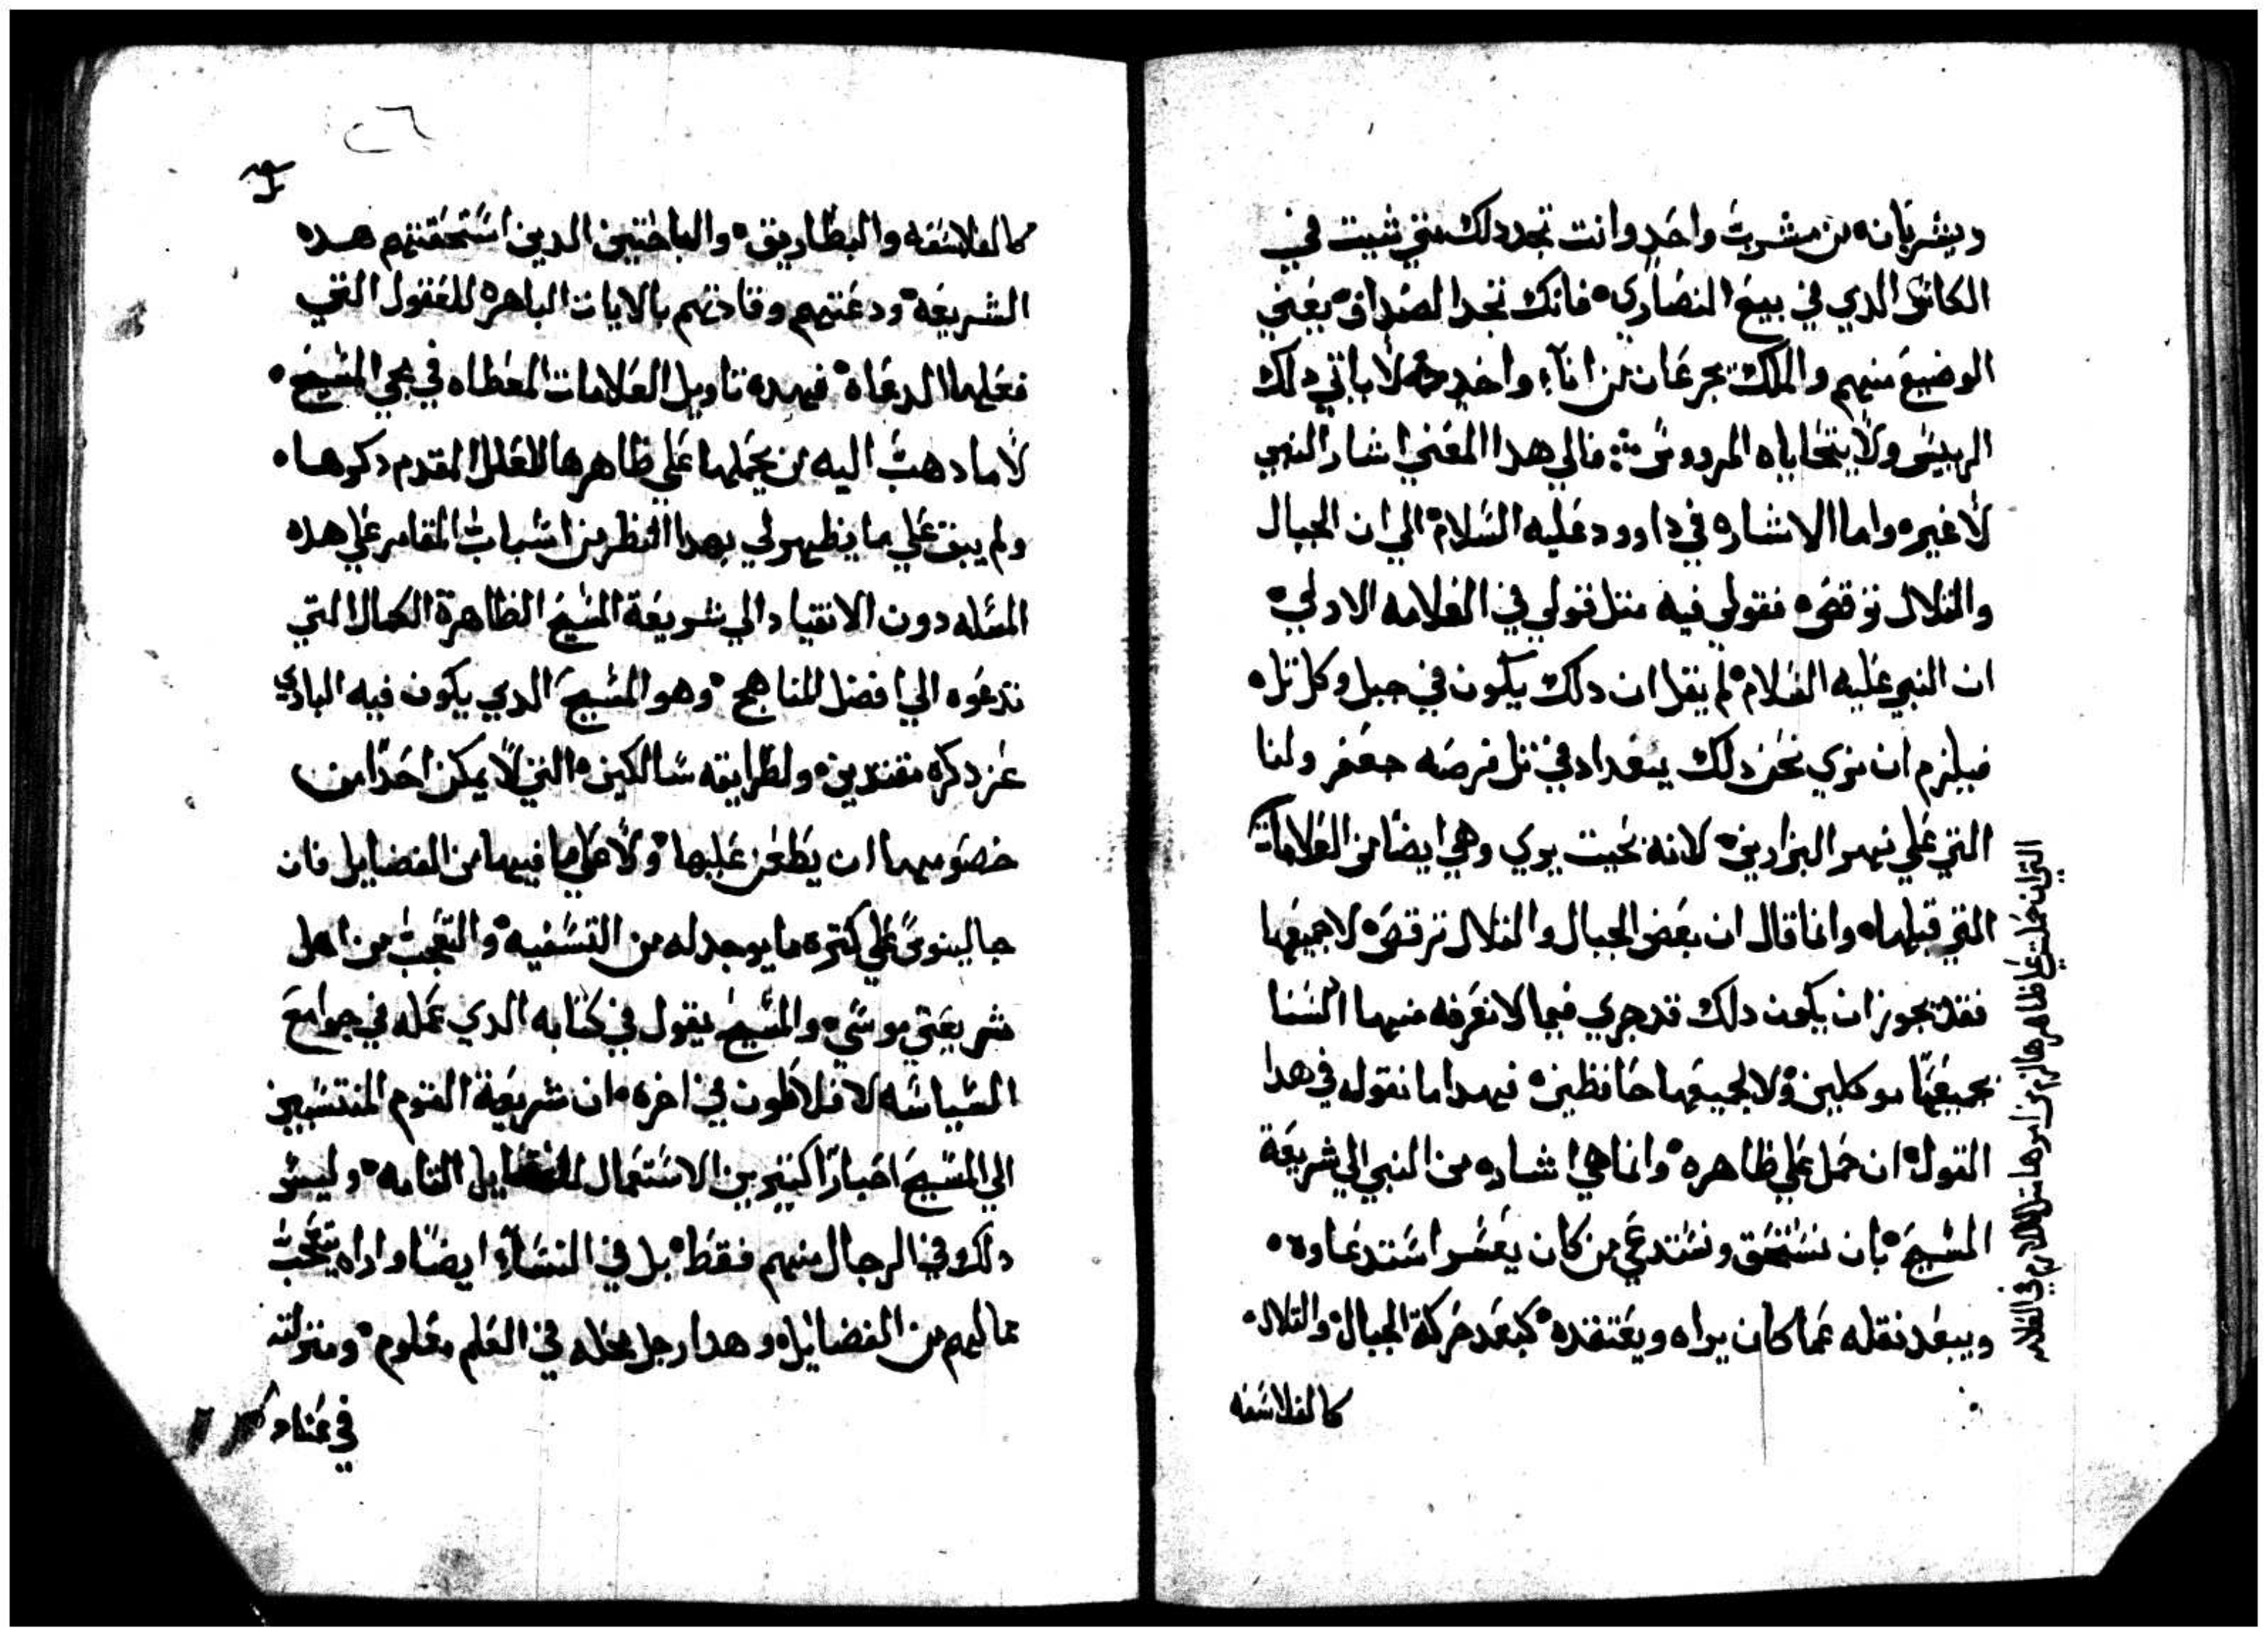 ويشربان من مشرب واحد وانت تجد دلك متي شيت في
الكاس الدي في بيع النصاري فانك تجد الصداق يعني
الوضيع منهم والملك يجرعان من اناء واحد لا ياتي دلك
الرييس ولا يتحاباه المرووس فالي هدا المعني اشار النبي
لا غيره واما الاشاره في داوود عليه السلام الي ان الجبال
والتلال ترقص فقولي فيه متل قولي في العلامه الاولي
ان النبي عليه السلام لم يقل ان دلك يكون في جبل وكل تل
فيلزم ان نري نحن دلك ببغداد في تل فرصه جعفر ولنا
التي علي نهر البزازين لانه بحيت يري وهي ايضا من العلامات
التي قبلها وانما قال ان بعض الجبال والتلال ترقص لا جميعها
فقد يجوز ان يكون دلك قد جري فيما لا نعرفه منها السنا
بجميعها موكلين ولا لجميعها حافظين فهدا ما نقوله في هدا
القول ان حمل علي ظاهره وانما هي اشاره من النبي الي شريعة
المسيح بان تستحق وتستدعي من كان يعسر استدعاوه
ويبعد نقله عما كان يراه ويعتقده كبعد حركة الجبال والتلال
كالفلاسفه
التي ان حملت علي ظاهرها لزم من امرها متل اللازم في العلامه
٢٦
كالفلاسفه والبطاريق والباحتين الدين استحقتهم هده
الشريعه ودعتهم وقادتهم بالايات الباهره للعقول التي
فعلها الدعاه فهده تاويل العلامات المعطاه في مجي المسيح
لا ما دهب اليه من يحملها علي ظاهرها للعلل المقدم دكرها
ولم يبق علي ما يظهر لي بهدا النظر من اسباب المقام علي هده
المسله دون الانقياد الي شريعة المسيح الظاهرة الكمال التي
تدعوه الي افضل المناهج وهو المسيح الدي يكون فيه البادي
عز دكره مقتدين ولطرايقه سالكين التي لا يمكن احدا من
خصومها ان يطعن عليها ولا علي ما فيها من الفضايل فان
جالينوس علي كترة ما يوجد له من التسفيه والتعجب من اهل
شريعتي موسي والمسيح يقول في كتابه الدي عمله في جوامع
السياسه لافلاطون في اخره ان شريعة القوم المنتسبين
الي المسيح اخبارا كتير من الاستعمال للفضايل التامه وليس
دلك في الرجال منهم فقط بل في النساء ايضا واراه يتعجب
مما لهم من الفضايل وهدا رجل محله في العلم معلوم ومنزلته
في عناد